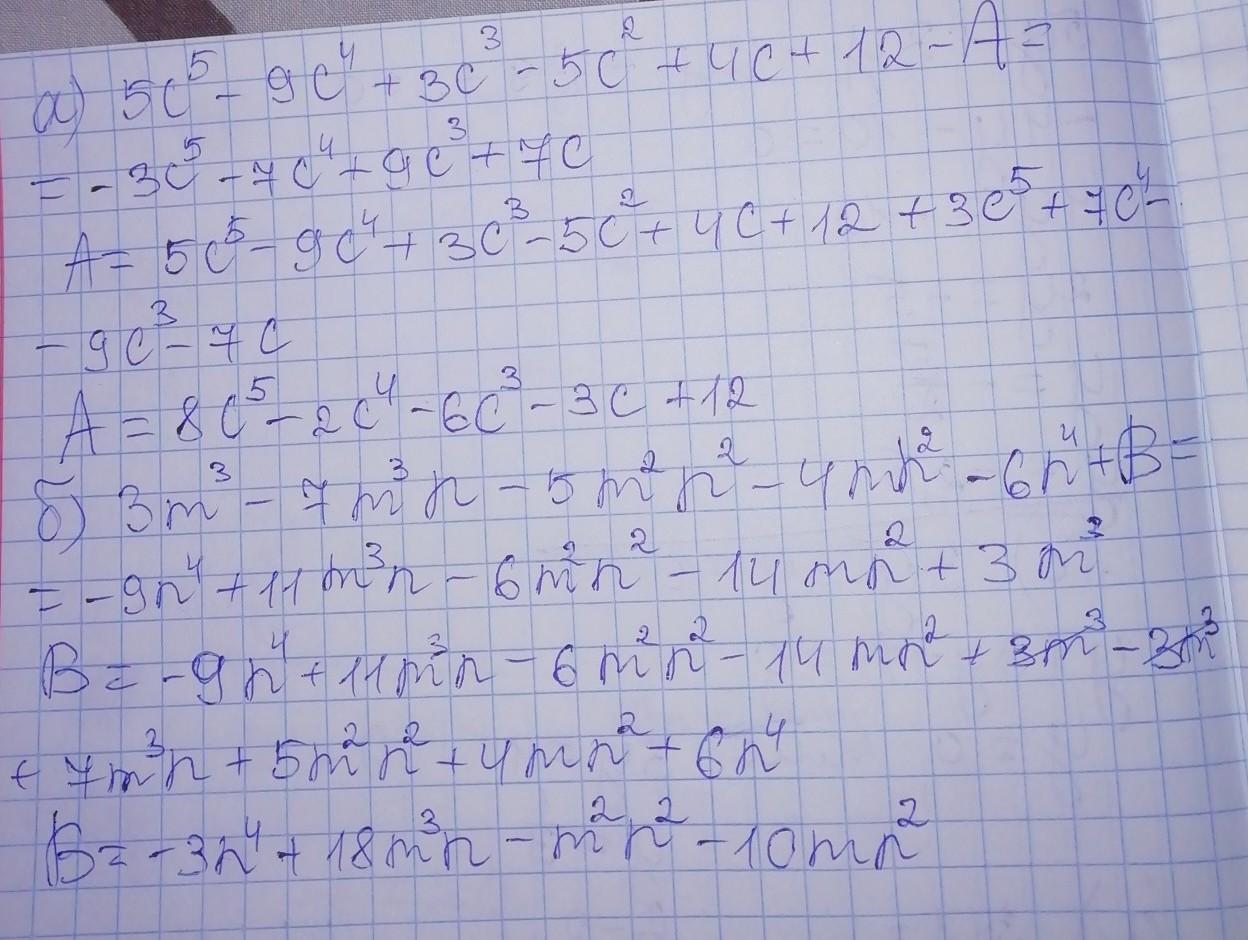 а) 5c⁵ - 9c⁴ + 3c³ - 5c² + 4c + 12 - A =
= - 3c⁵ - 7c⁴ + 9c³ + 7c
A = 5c⁵ - 9c⁴ + 3c³ - 5c² + 4c + 12 + 3c⁵ + 7c⁴ -
- 9c³ - 7c
A = 8c⁵ - 2c⁴ - 6c³ - 3c + 12
б) 3m³ - 7m³n - 5m²n² - 4mn² - 6n⁴ + B =
= - 9n⁴ + 11m³n - 6m²n² - 14mn² + 3m³
B = - 9n⁴ + 11m³n - 6m²n² - 14mn² + 3m³ - 3m³
+ 7m³n + 5m²n² + 4mn² + 6n⁴
B = - 3n⁴ + 18m³n - m²n² - 10mn²